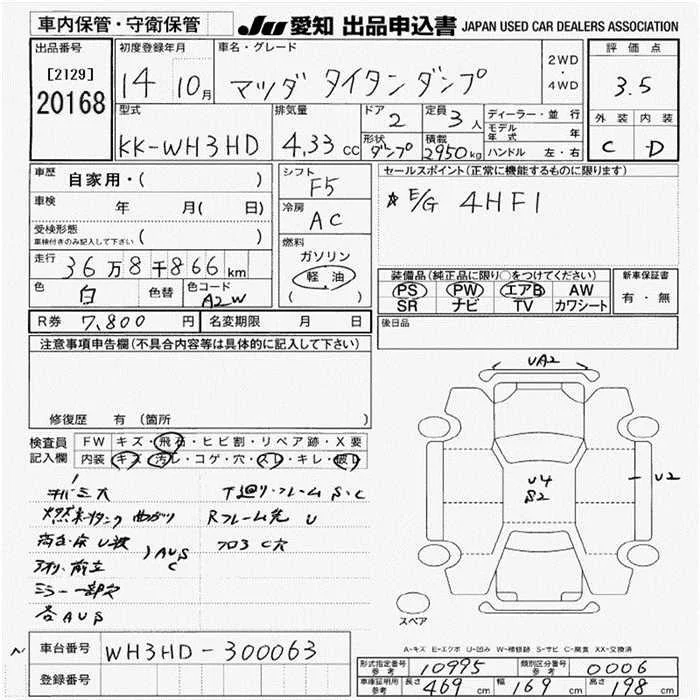 車内保管・守衛保管
JU 愛知 出品申込書 JAPAN USED CAR DEALERS ASSOCIATION
出品番号
[2129]
20168
初度登録年月
14 10月
車名・グレード
マツダ タイタンダンプ
2WD
・
4WD
評価点
3.5
外装 内装
C D
型式
KK-WH3HD
排気量
4.33 cc
ドア
2
定員
3人
形状
ダンプ
積載
2950kg
ディーラー・並行
モデル年式 年
ハンドル 左・右
車歴
自家用・( )
車検
年 月( 日)
受検形態
車検付きのみ記入して下さい ( )
走行
36万8千866km
色
白
色替
色コード
A2W
シフト
F5
冷房
AC
燃料
ガソリン
軽油
( )
セールスポイント(正常に機能するものに限ります)
☆E/G 4HF1
装備品(純正品に限り○をつけてください)
PS PW エアB AW
SR ナビ TV カワシート
新車保証書
有・無
後日品
R券 7,800 円
名変期限 月 日
注意事項申告欄(不具合内容等は具体的に記入して下さい)
修復歴 有 (箇所 )
検査員
記入欄
FW キズ・飛石・ヒビ割・リペア跡・X要
内装 キズ・汚レ・コゲ・穴・スレ・キレ・破レ
下廻り・フレーム S・C
Rフレーム先 U
フロア C穴
AUS
C
各AUS
UA2
U4
S2
U2
スペア
A-キズ E-エクボ U-凹み W-補修跡 S-サビ C-腐食 XX-交換済
車台番号
WH3HD-300063
登録番号
形式指定番号
参考
10995
類別区分番号
参考
0006
車庫証明用
参考
長さ 469 cm
幅 169 cm
高さ 198 cm